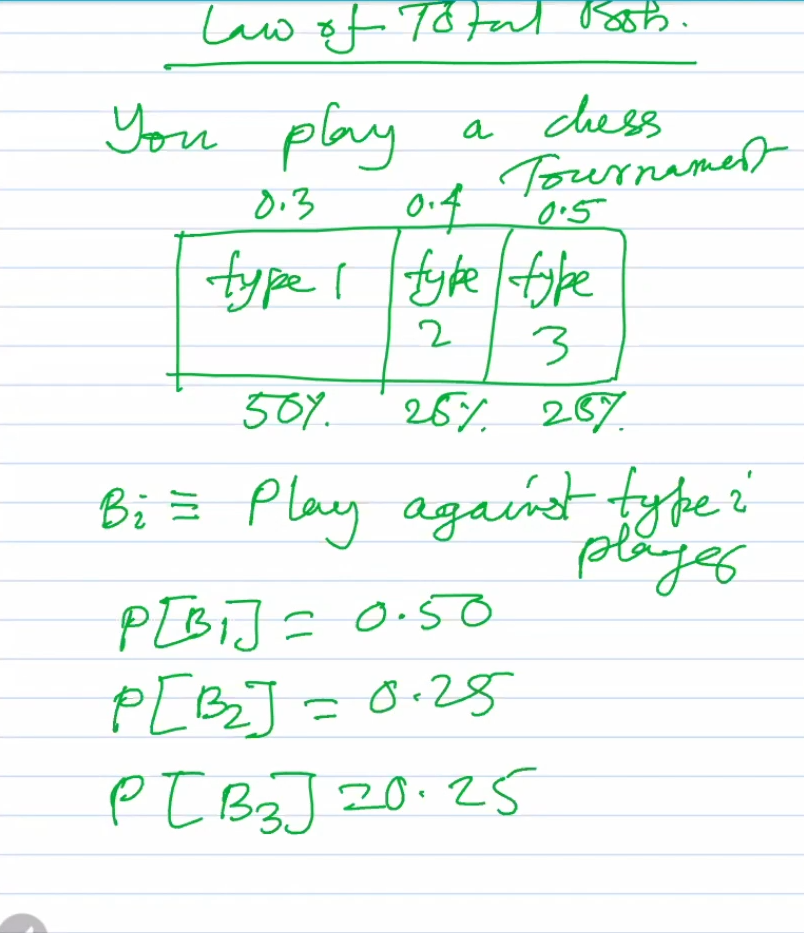 Law of Total Prob.
You play a chess
Tournament
0.3 0.4 0.5
type 1 type type
2 3
50% 25% 25%
Bi ≡ Play against type i
player
P[B1] = 0.50
P[B2] = 0.25
P[B3] = 0.25